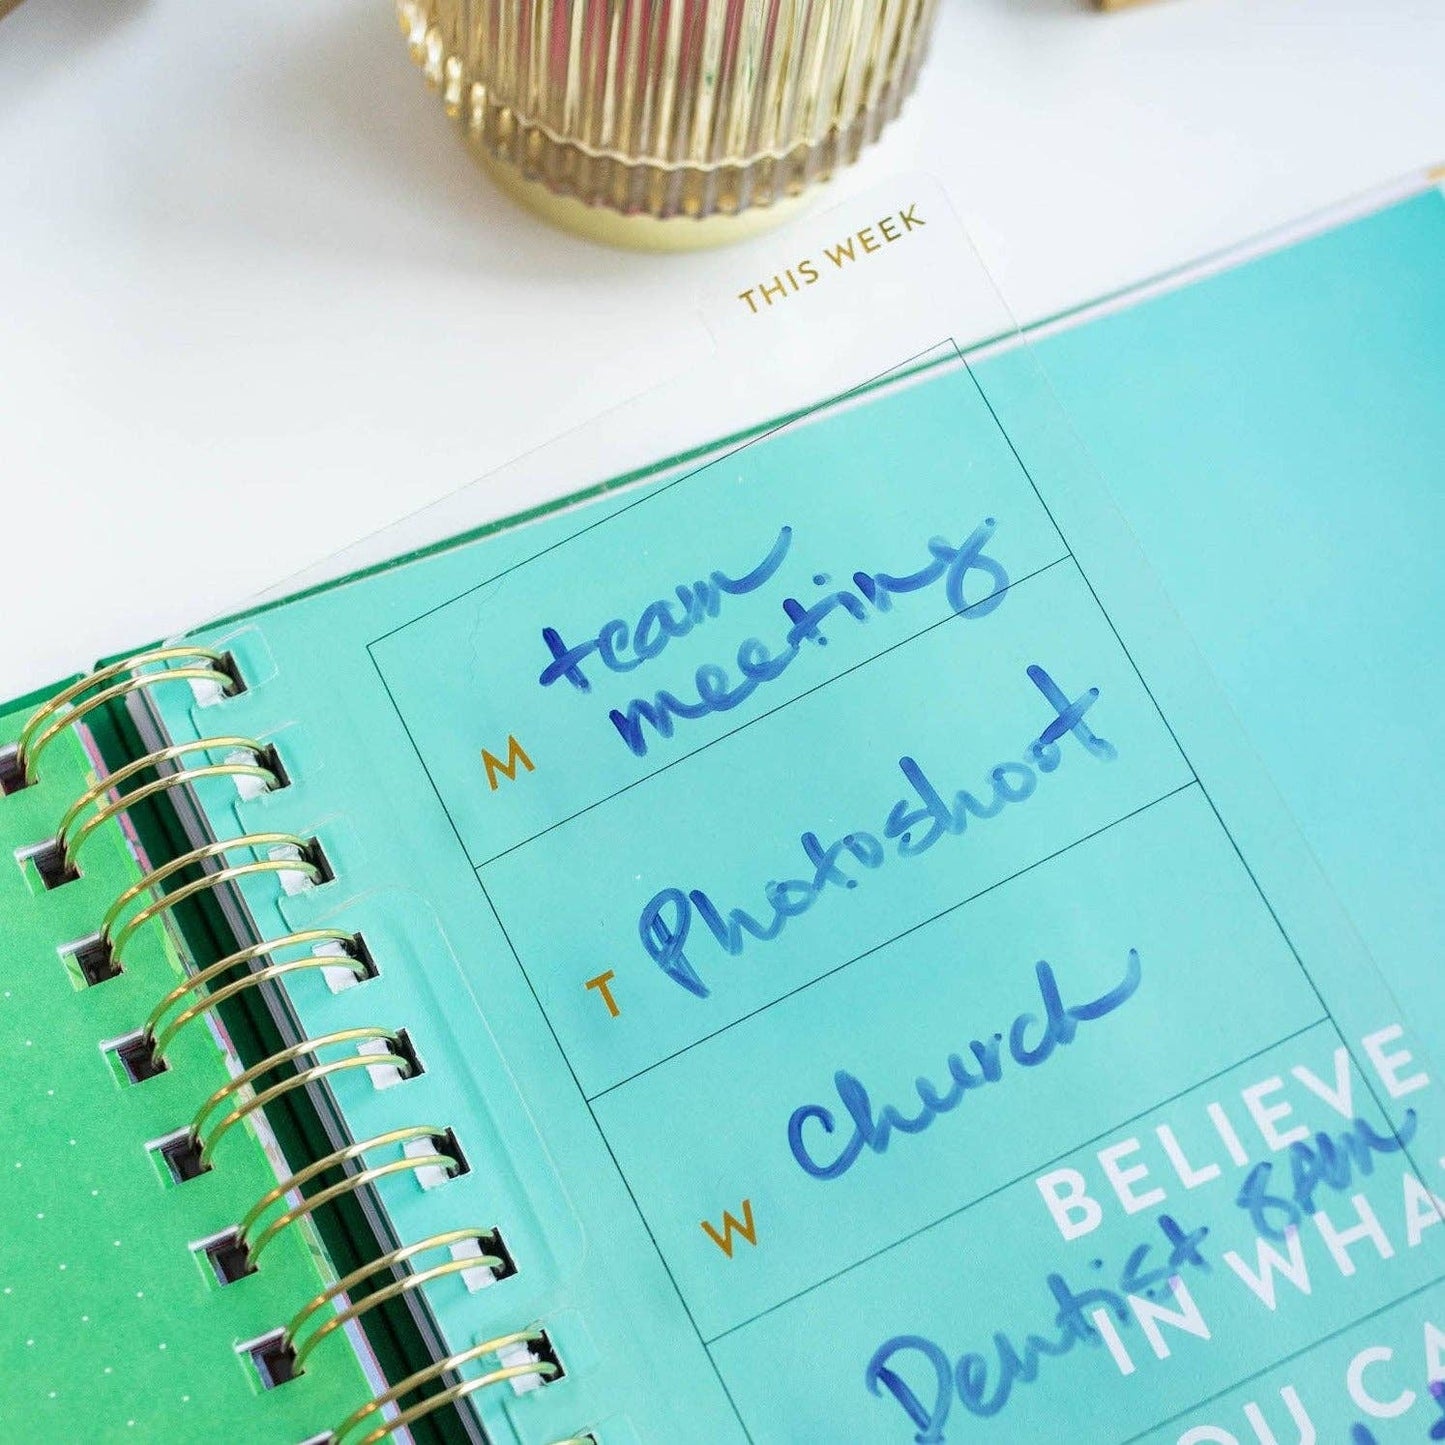 THIS WEEK
team
meeting
M
Photoshoot
T
Church
W
Dentist 8AM
BELIEVE
IN